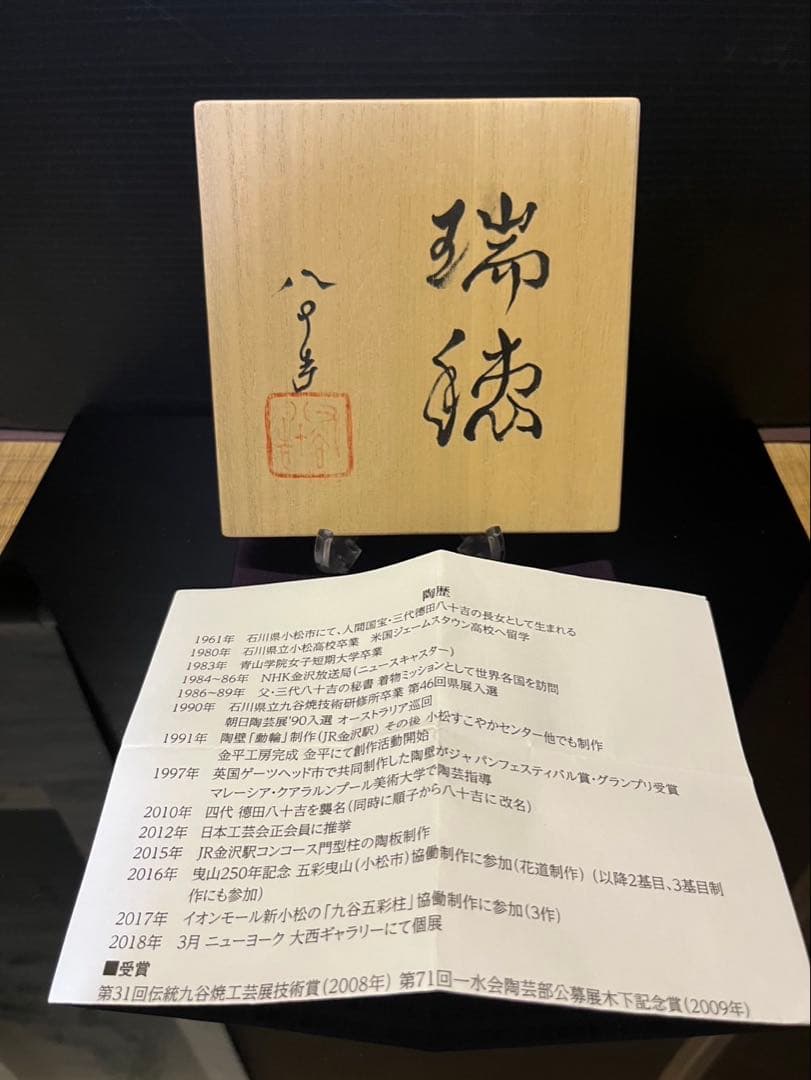 瑞穂
八十吉
陶歴
1961年 石川県小松市にて、人間国宝・三代徳田八十吉の長女として生まれる
1980年 石川県立小松高校卒業 米国ジェームスタウン高校へ留学
1983年 青山学院女子短期大学卒業
1984~86年 NHK金沢放送局(ニュースキャスター)
1986~89年 父・三代八十吉の秘書 着物ミッションとして世界各国を訪問
1990年 石川県立九谷焼技術研修所卒業 第46回県展入選
朝日陶芸展'90入選 オーストラリア巡回
1991年 陶壁「動輪」制作(JR金沢駅) その後 小松すこやかセンター他でも制作
金平工房完成 金平にて創作活動開始
1997年 英国ゲーツヘッド市で共同制作した陶壁がジャパンフェスティバル賞・グランプリ受賞
マレーシア・クアラルンプール美術大学で陶芸指導
2010年 四代 德田八十吉を襲名(同時に順子から八十吉に改名)
2012年 日本工芸会正会員に推挙
2015年 JR金沢駅コンコース門型柱の陶板制作
2016年 曳山250年記念 五彩曳山(小松市)協働制作に参加(花道制作) (以降2基目、3基目制
作にも参加)
2017年 イオンモール新小松の「九谷五彩柱」協働制作に参加(3作)
2018年 3月 ニューヨーク 大西ギャラリーにて個展
■受賞
第31回伝統九谷焼工芸展技術賞(2008年) 第71回一水会陶芸部公募展木下記念賞(2009年)